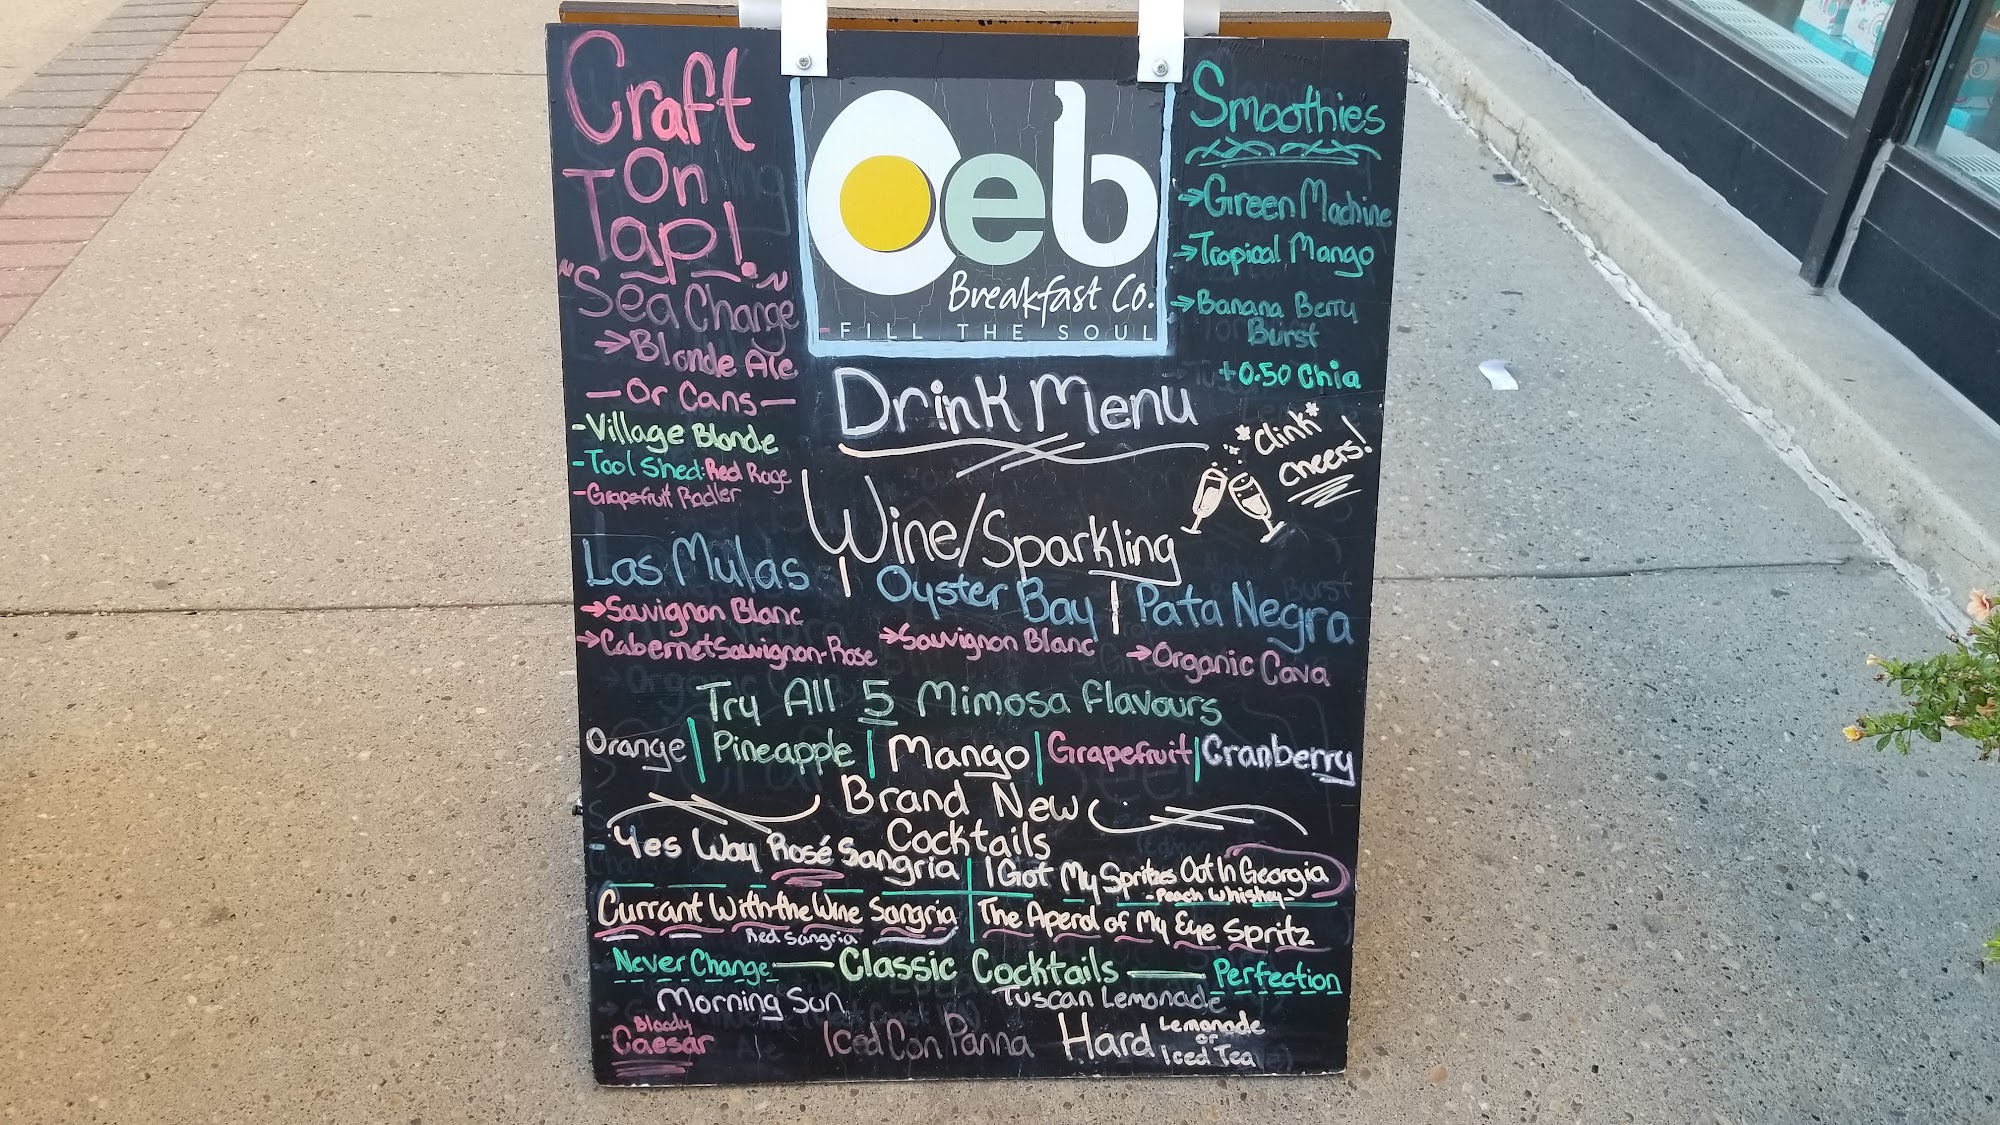 Craft
on
Tap!
~Sea Change~
→Blonde Ale
—Or Cans—
-Village Blonde
-Tool Shed: Red Rage
-Grapefruit Radler
Oeb
Breakfast Co.
FILL THE SOUL
Smoothies
→Green Machine
→Tropical Mango
→Banana Berry
Burst
+0.50 Chia
Drink Menu
*Clink*
Cheers!
Wine/Sparkling
Las Mulas | Oyster Bay | Pata Negra
→Sauvignon Blanc
→Cabernet Sauvignon-Rose
→Sauvignon Blanc
→Organic Cava
Try All 5 Mimosa flavours
Orange | Pineapple | Mango | Grapefruit | Cranberry
Brand New
Cocktails
-Yes Way Rosé Sangria | I Got My Spritzes Out In Georgia
-Peach Whiskey-
Currant With the Wine Sangria | The Aperol of My Eye Spritz
Red Sangria
Never Change — Classic Cocktails — Perfection
Morning Sun Tuscan Lemonade
Bloody
Caesar
Iced Con Panna
Hard Lemonade
or
Iced Tea